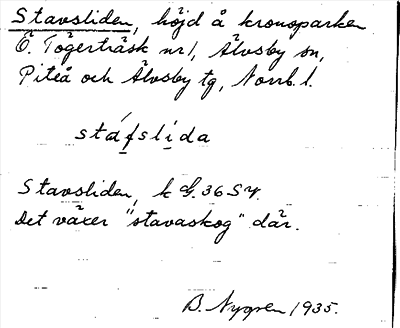 Stavsliden, höjd å kronoparken
Ö. Tögerträsk nr 1, Älvsby sn,
Piteå och Älvsby tg, Norrb. l.
stáfslida
Stavsliden, k 36 SV.
Det växer "stavaskog" där.
B. Nygren 1935.